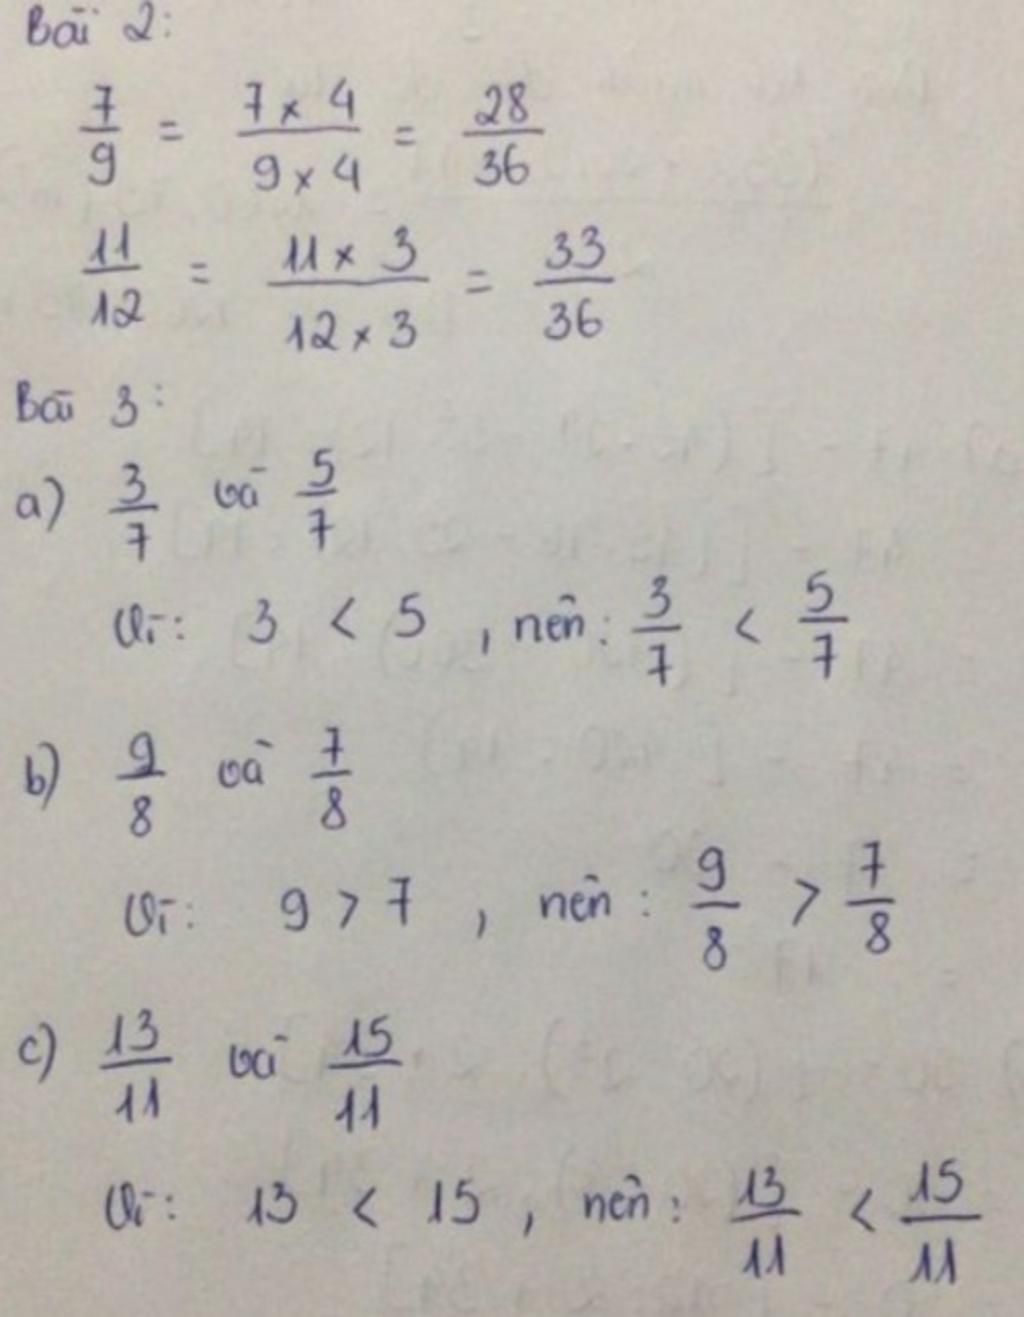 Bài 2:
7/9 = 7 × 4 / 9 × 4 = 28/36
11/12 = 11 × 3 / 12 × 3 = 33/36
Bài 3:
a) 3/7 và 5/7
Vì: 3 < 5 , nên: 3/7 < 5/7
b) 9/8 và 7/8
Vì: 9 > 7 , nên: 9/8 > 7/8
c) 13/11 và 15/11
Vì: 13 < 15 , nên: 13/11 < 15/11